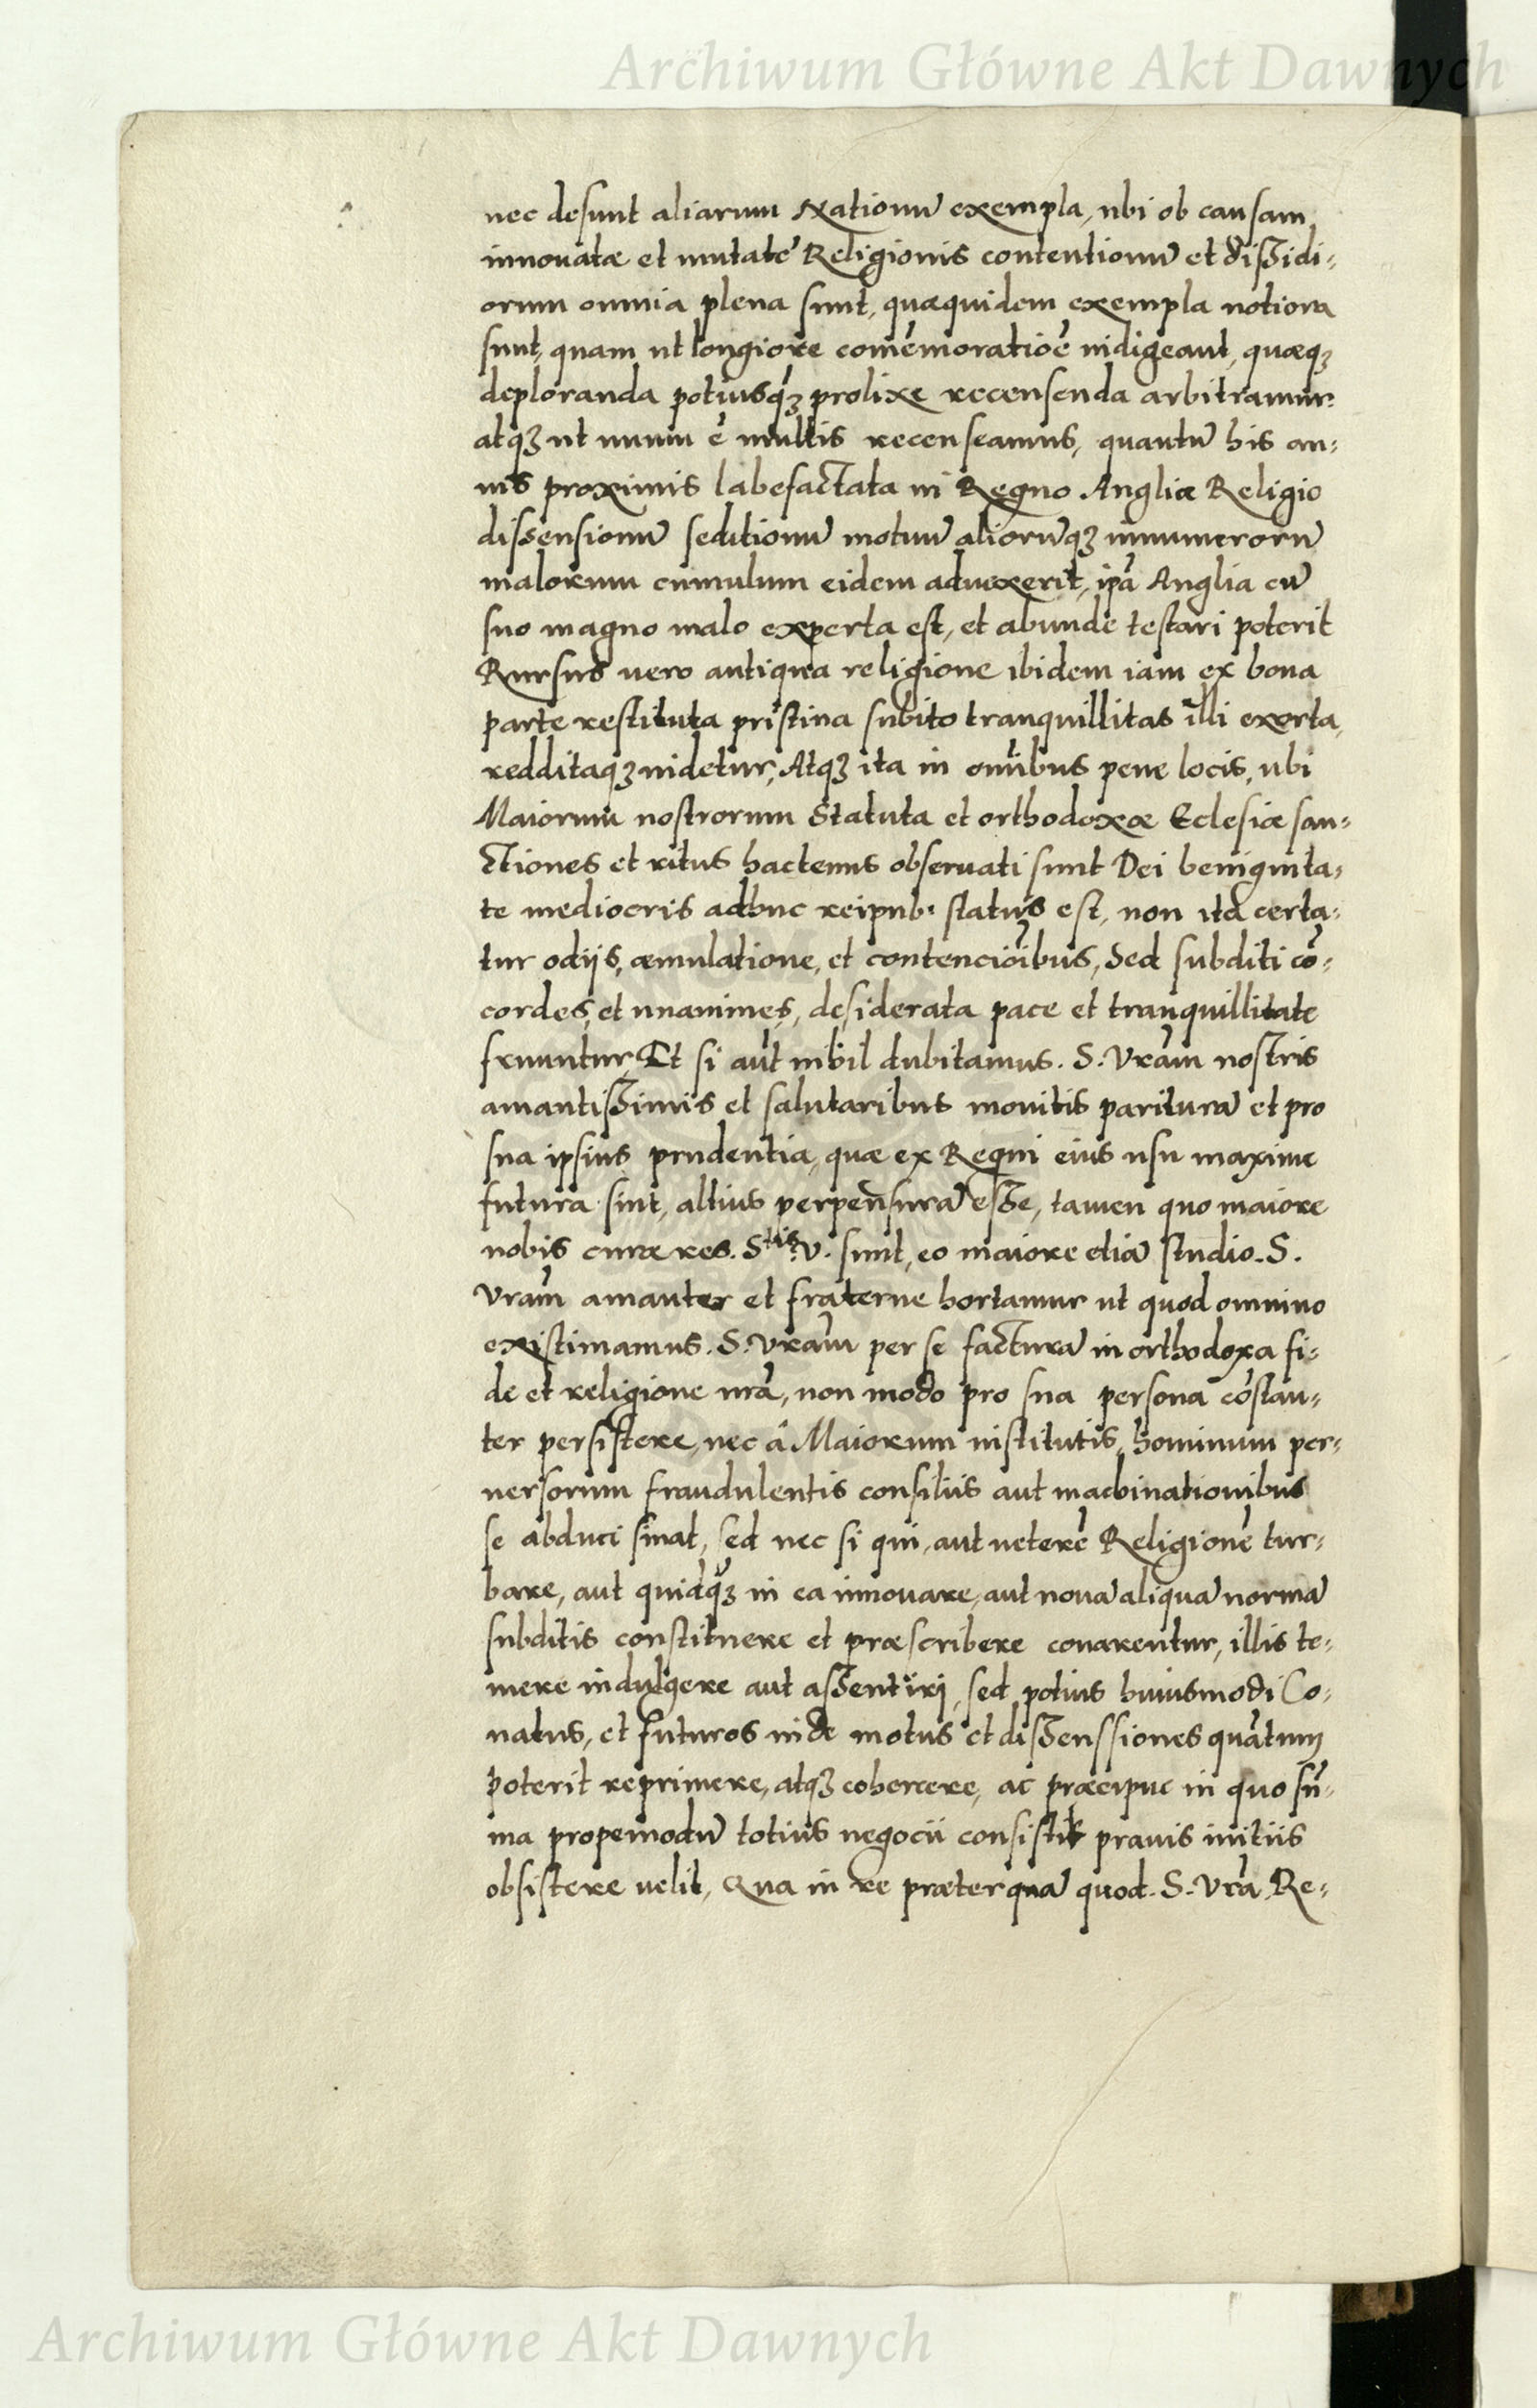 Archiwum Główne Akt Dawnych
nec desunt aliarum Nationū exempla, ubi ob causam
innouatæ et mutatę Religionis contentionū et dissidi=
orum omnia plena sunt, quæquidem exempla notiora
sunt, quam ut longiore comēmoratiōe indigeant, quæq3
deploranda potiusq̃3 prolixe recensenda arbitramur.
atq3 ut unum ē multis recenseamus, quantū his an=
nis proximis labefactata in Regno Angliæ Religio
dissensionū seditionū motuū aliorūq3 innumerorū
malorum cumulum eidem aduexerit, ip̃a Anglia cū
suo magno malo experta est, et abunde testari poterit
Rursus uero antiqua religione ibidem iam ex bona
parte restituta pristina subito tranquillitas illi exorta,
redditaq3 uidetur, Atq3 ita in om̃ibus pene locis, ubi
Maiorum nostrorum Statuta et orthodoxæ Eclesiæ san=
ctiones et ritus hactenus obseruati sunt Dei benignita=
te mediocris adhuc reipub: status est, non ita certa=
tur odijs, æmulatione, et contencioĩbus, Sed subditi cō=
cordes, et unanimes, desiderata pace et tranquillitate
fruuntur, Et si aũt nihil dubitamus. S. Vram̃ nostris
amantissimis et salutaribus monitis pariturā et pro
sua ipsius prudentia, quæ ex Regni eius usu maxime
futura sint, altius perpensurā esse, tamen quo maiore
nobis curæ res. Stis. V. sunt, eo maiore etiā studio. S.
Vram̃ amanter et fraterne hortamur ut quod omnino
existimamus. S. Vram̃ per se facturā in orthodoxa fi=
de et religione nr̃a, non modo pro sua persona cōstan=
ter persistere, nec â Maiorum institutis, hominum per=
uersorum fraudulentis consiliis aut machinationibus
se abduci sinat, sed nec si qui, aut ueterē Religionē tur=
bare, aut quidq̃3 in ea innouare, aut nouā aliquā normā
subditis constituere et præscribere conarentur, illis te=
mere indulgere aut assentiri, sed potius huiusmodi Co=
natus, et futuros inde motus et dissenssiones quātum
poterit reprimere, atq3 cohercere, ac præcipue in quo sū=
ma propemodū totius negocii consistit prauis initiis
obsistere uelit, Qua in re præterquā quod. S. Vr̃a, Re=
Archiwum Główne Akt Dawnych